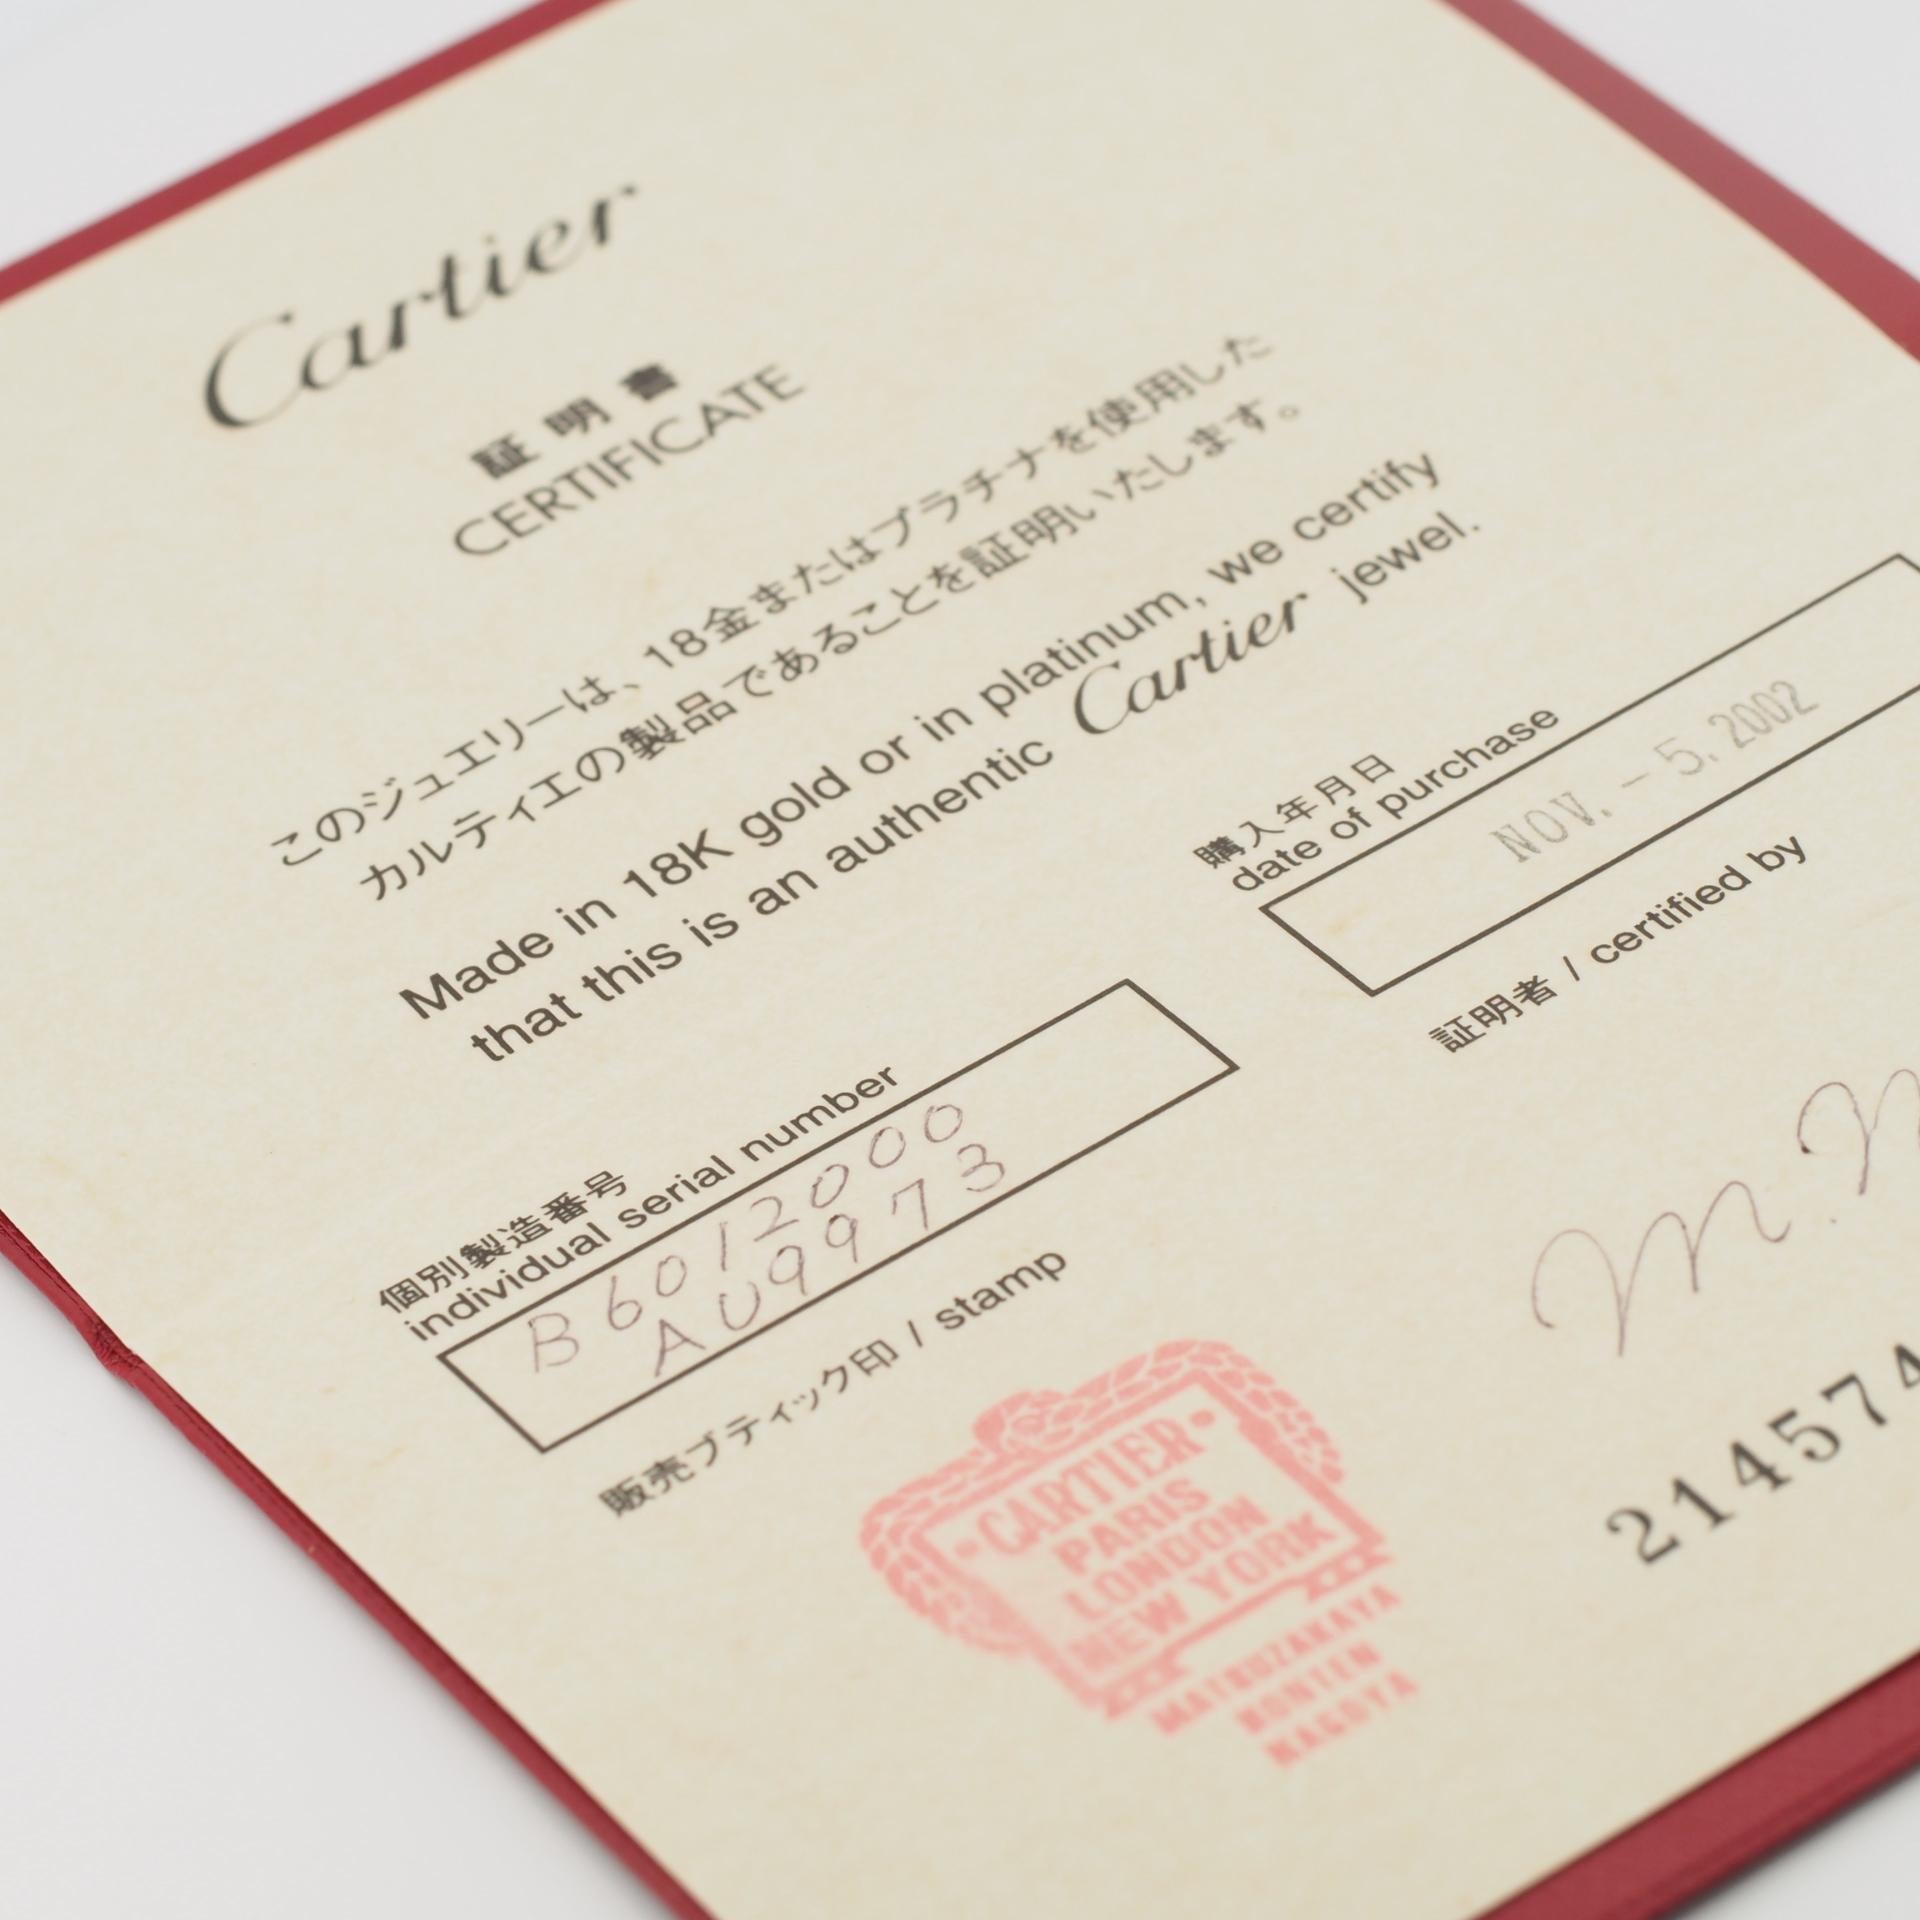 Cartier
証明書
CERTIFICATE
このジュエリーは、18金またはプラチナを使用した
カルティエの製品であることを証明いたします。
Made in 18K gold or in platinum, we certify
that this is an authentic Cartier jewel.
個別製造番号
individual serial number
B6012000
AU9973
購入年月日
date of purchase
NOV. - 5. 2002
証明者 / certified by
販売ブティック印 / stamp
CARTIER
PARIS
LONDON
NEW YORK
MATSUZAKAYA
HONTEN
NAGOYA
214574